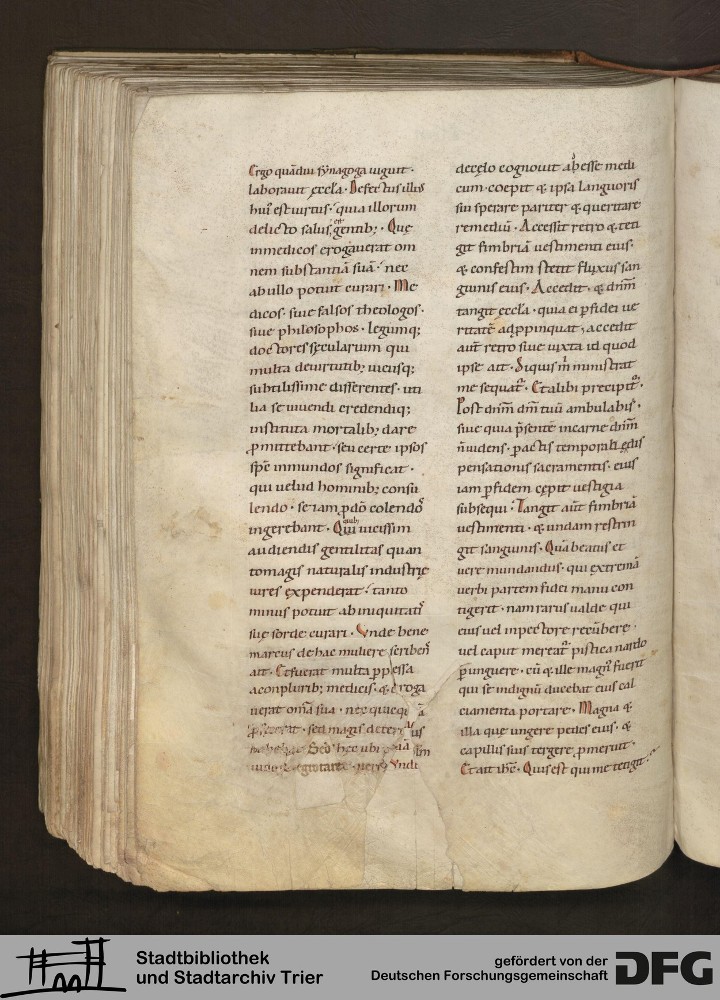 Ergo quādiu synagoga uiguit·
laborauit ęccła· Defectus illius
hui᾽ est uirtus· quia illorum
delicto salus est gentib;· Quę
in medicos erogauerat om
nem substantiā suā· nec
ab ullo potuit curari· Me
dicos· siue falsos theologos·
siue philosophos· legumq;
doctores sęcularium qui
multa de uirtutib; uiciisq;
subtilissime disserentes· uti
lia se uiuendi credendiq;
instituta mortalib; dare
ꝓmittebant· seu certe ipsos
spc̄ inmundos significat·
qui uelud hominib; consu
lendo· se iam ꝓ dō colendos
ingerebant· Quib; uicissim
audiendis gentilitas quan
to magis naturalis industrię
uires expenderat· tanto
minus potuit ab iniquitatis
suę sorde curari· Vnde bene
marcus de hac muliere scribens
ait· Et fuerat multa ꝑpessa
a conplurib; medicis· & eroga
uerat omīa sua· nec quicq̄
sed magis deterius
Sed hęc ubi
ęgrotare Vnde
de cęlo cognouit adesse medi
cum· coepit & ipsa languoris
sui sperare pariter & queritare
remediū· Accessit retro & teti
git fimbriā uestimenti eius·
& confestim stetit fluxus san
guinis eius· Accedit· & dn̄m
tangit ęccła· quia ei ꝑ fidei ue
ritatē adꝓpinquat, accedit
aūt retro siue iuxta id quod
ipse ait· Si quis m̄ ministrat
me sequat᷒· Et alibi precipit᷒·
Post dn̄m dm̄ tuū ambulabis·
siue quia p̄sentē in carne dn̄m
n̄ uidens· ꝑactis temporalis dis
pensationis sacramentis· eius
iam ꝑ fidem cępit uestigia
subsequi· Tangit aūt fimbriā
uestimenti· & undam restrin
git sanguinis· Quia beatus et
uere mundandus· qui extremā
uerbi partem fidei manu con
tigerit· nam rarus ualde qui
eius uel in pectore recūbere·
uel caput mereat᷒ pistica nardo
ꝑunguere· cū & ille magn᾽ fuerit
qui se indignū ducebat eius cal
ciamenta portare· Magna &
illa quę ungere pedes eius· &
capillis suis tergere ꝓmeruit·
Et ait ihc̄· Quis est qui me tetigit·
Stadtbibliothek
und Stadtarchiv Trier
gefördert von der
Deutschen Forschungsgemeinschaft
DFG